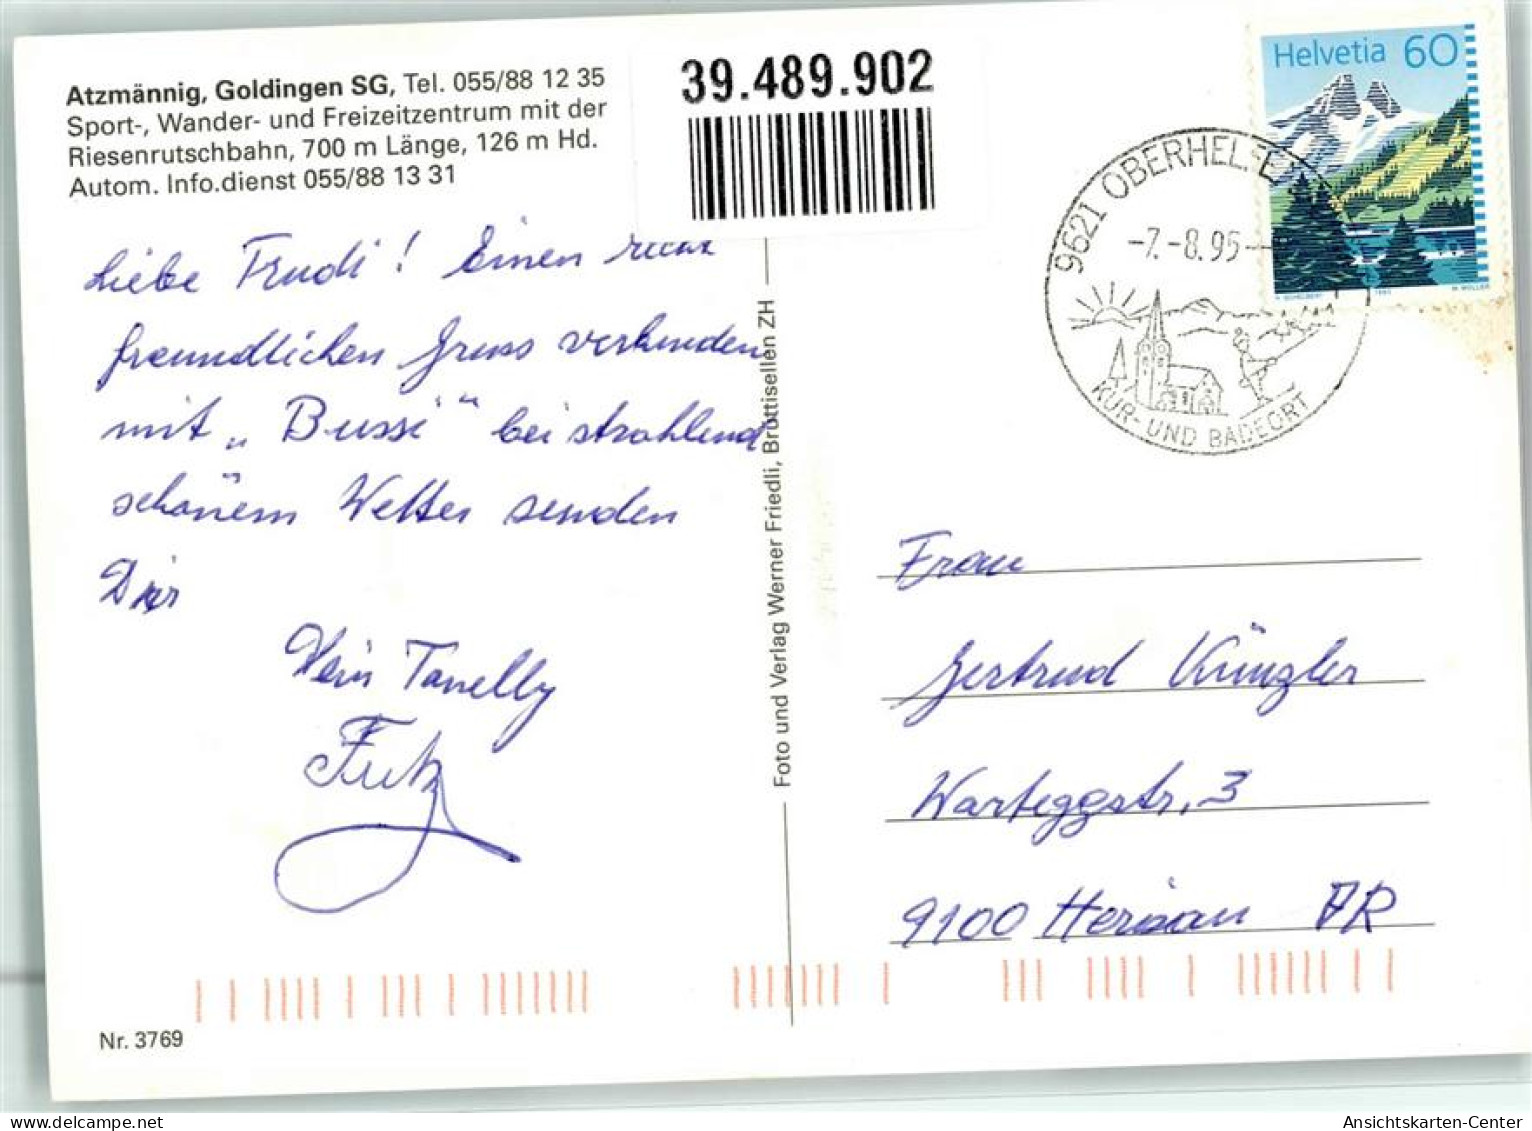 Atzmännig, Goldingen SG, Tel. 055/88 12 35
Sport-, Wander- und Freizeitzentrum mit der
Riesenrutschbahn, 700 m Länge, 126 m Hd.
Autom. Info.dienst 055/88 13 31
39.489.902
Helvetia 60
9621 OBERHELFE
-7.-8.95-
KUR- UND BADEORT
Liebe Trudi! Einen recht
freundlichen Gruss verbunden
mit „Bussi“ bei strahlend
schönem Wetter senden
Dir
Dein
Foto und Verlag Werner Friedli, Brüttisellen ZH
Frau
Gertrud Künzler
Warteggstr. 3
9100 Herisau AR
Nr. 3769
Ansichtskarten-Center